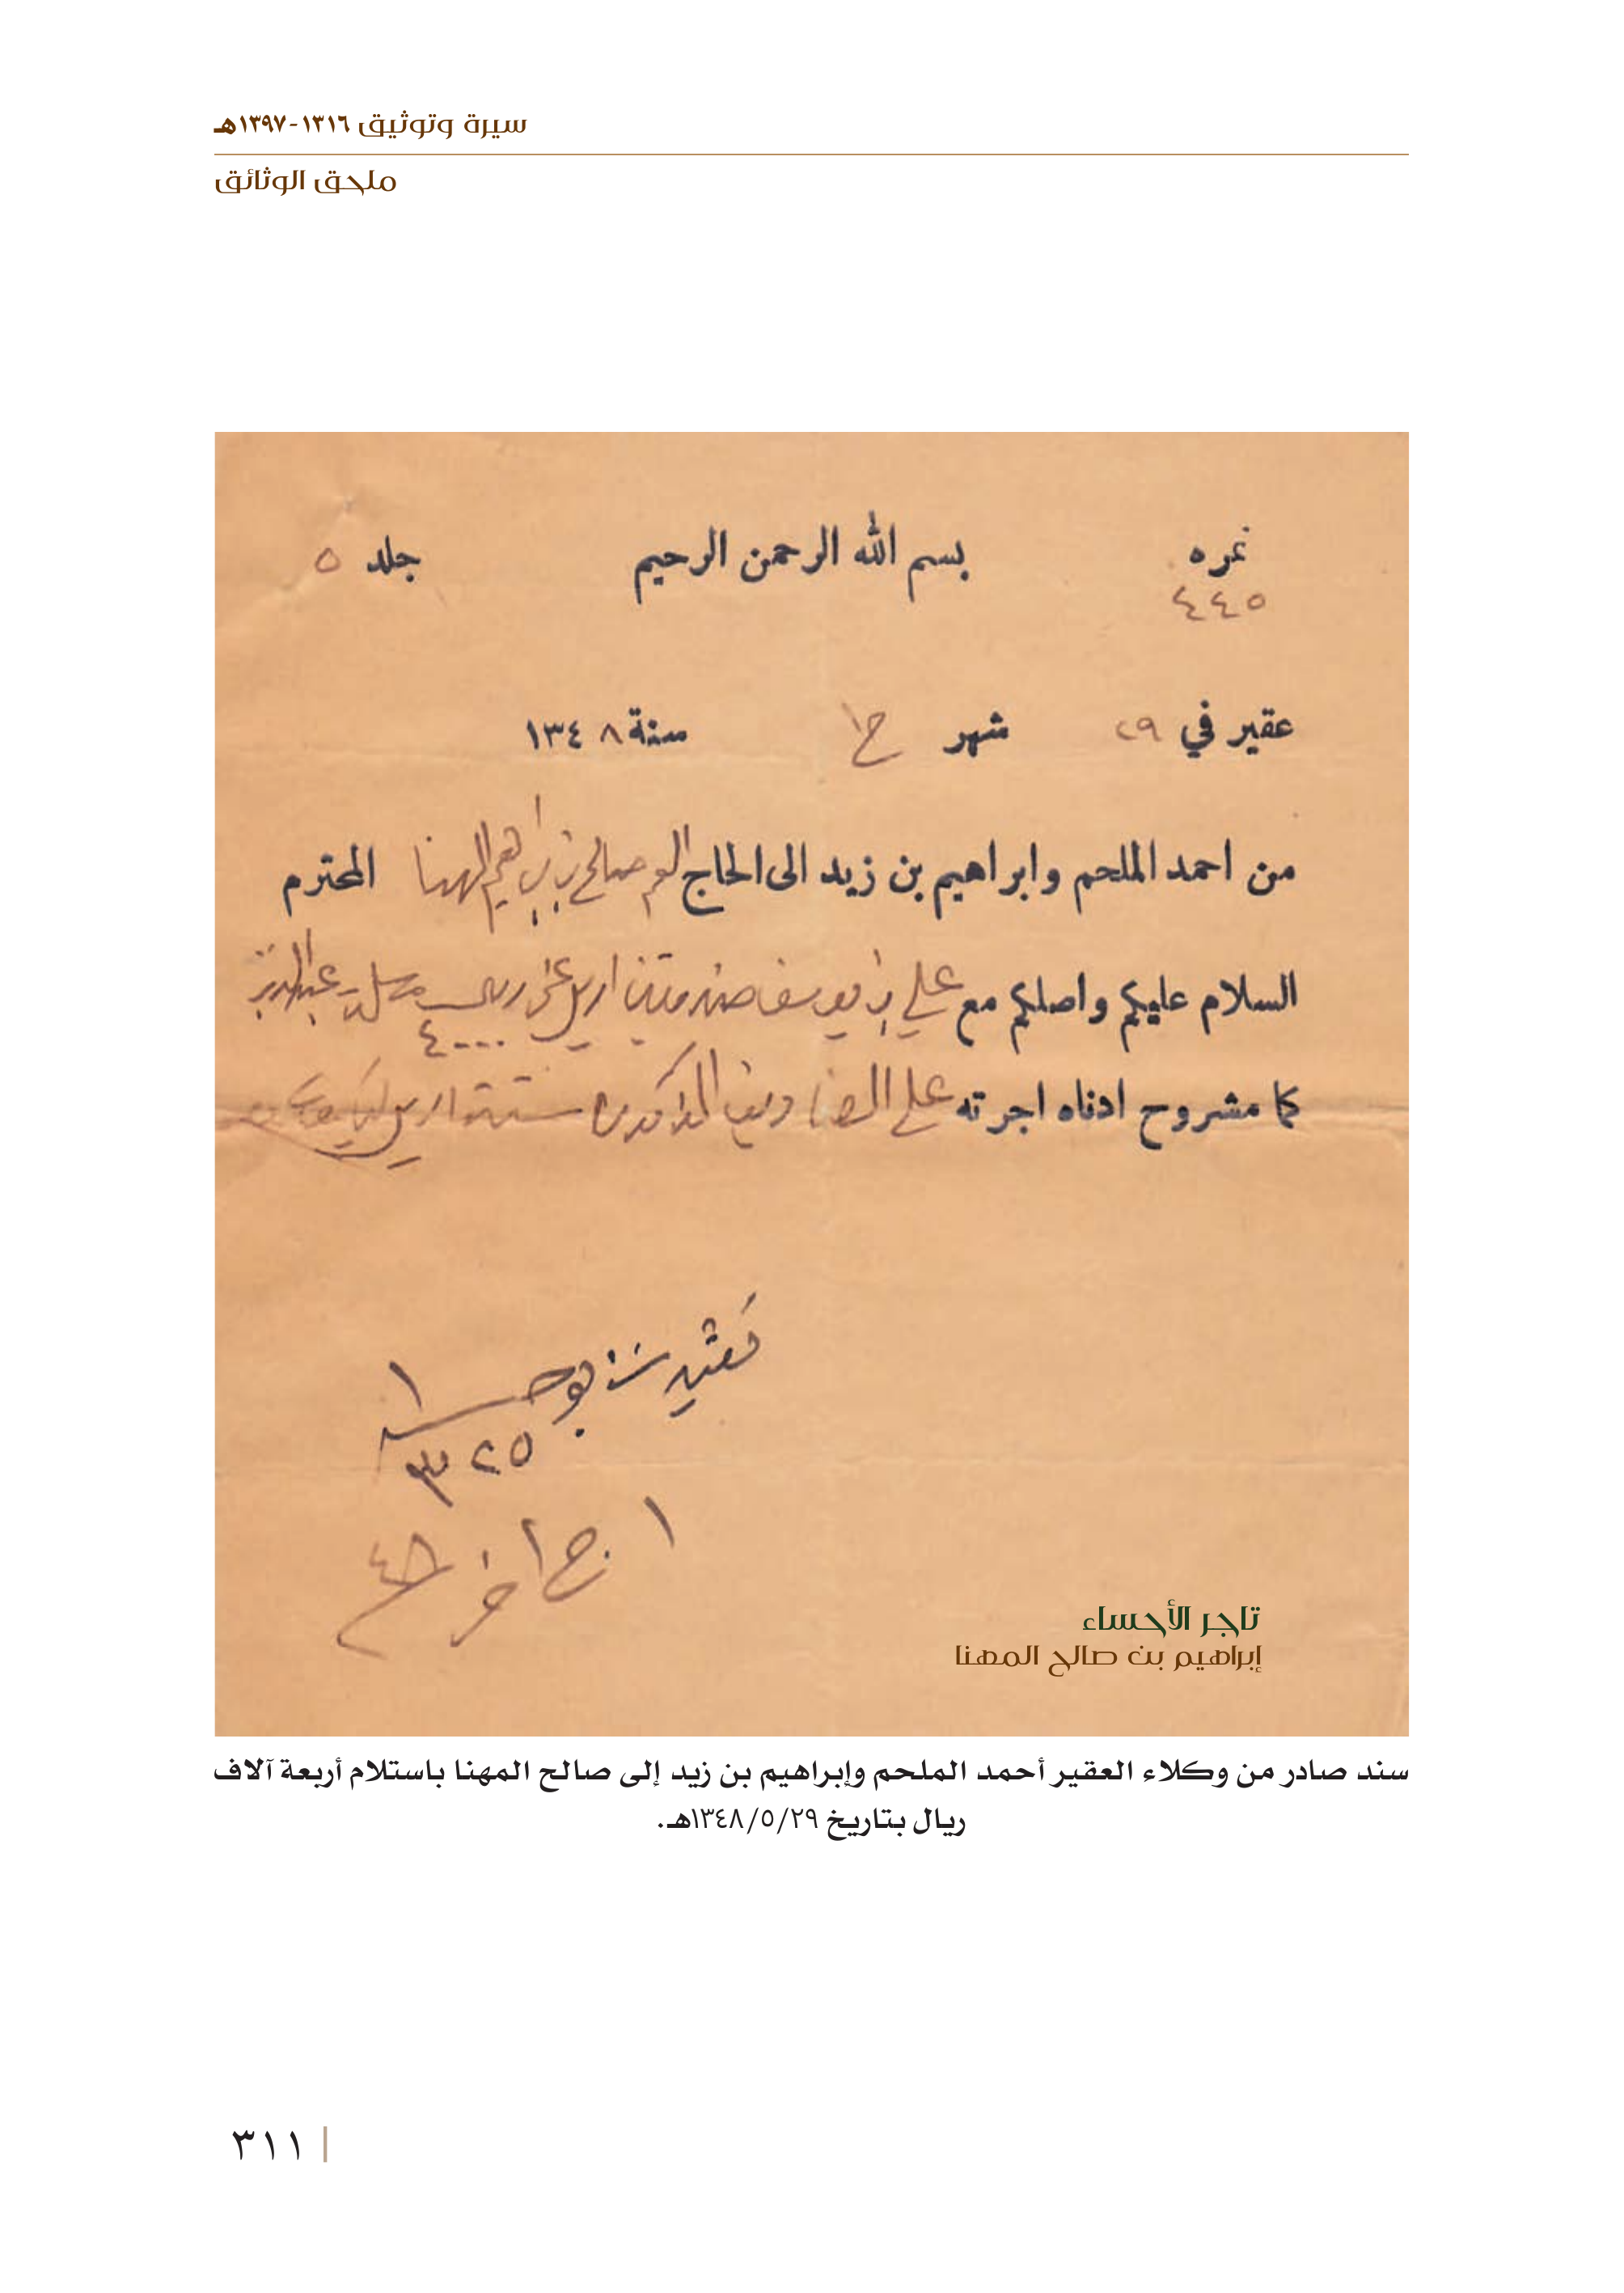 سيرة وتوثيق ١٣١٦-١٣٩٧هـ
ملحق الوثائق
نمره بسم الله الرحمن الرحيم جلد ٥
٤٤٥
عقير في ٢٩ شهر ج١ سنة ١٣٤٨
من احمد الملحم وابراهيم بن زيد الى الحاج العم صالح بن ابراهيم المهنا المحترم
السلام عليكم واصلكم مع علي بن يوسف عبدالعزيز
٤٠٠٠
كما مشروح ادناه اجرته على
٣٢٥
١ ج اخر ٤٨
تاجر الأحساء
إبراهيم بن صالح المهنا
سند صادر من وكلاء العقير أحمد الملحم وإبراهيم بن زيد إلى صالح المهنا باستلام أربعة آلاف
ريال بتاريخ ١٣٤٨/٥/٢٩هـ.
٣١١